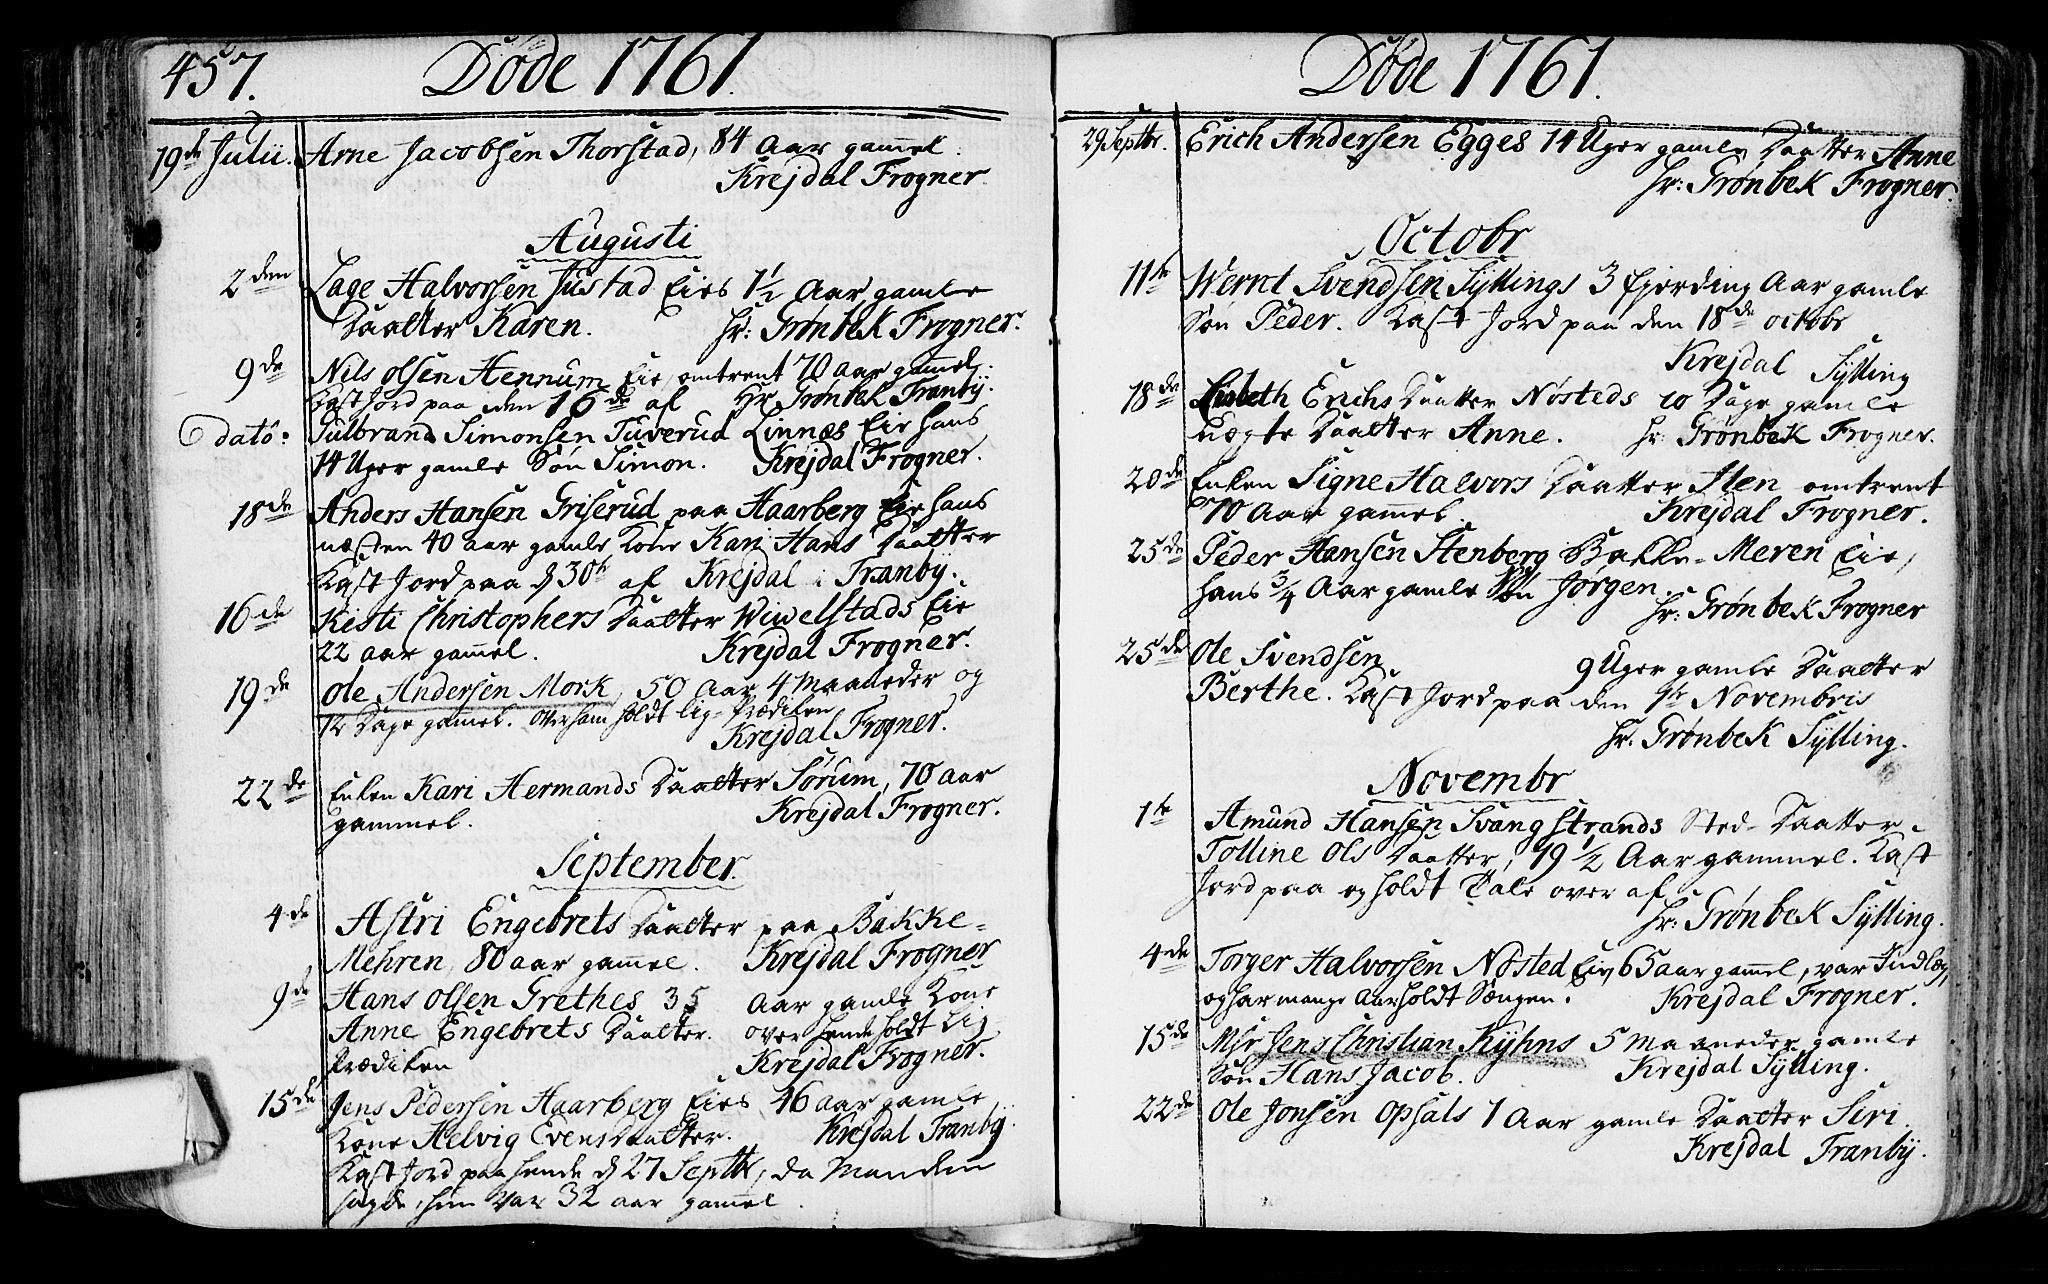 457. Døde 1761.
19de Julii. Arne Jacobsen Thorstad, 84 Aar gam̄el.
Krejdal Frogner.
Augusti
2den Lage Halvorsen Justad Eies 1 1/2 Aar gamle
Daatter Karen. Hr: Grønbek Frogner.
9de Nils Olsen Hennum Eie, omtrent 70 aar gam̄el.
Kast Jord paa den 16de af Hr Grønbek Tranby.
dato: Gulbrand Simonsen Tuverud Linnæs Eie hans
14 Uger gamle Søn Simon. Krejdal Frogner.
18de Anders Hansen Griserud paa Haarberg Eie hans
næsten 40 aar gamle Kone Kari Hans Daatter
Kast Jord paa d 30te af Krejdal i Tranby.
16de Kisti Christophers Daatter Wiwelstads Eie
22 aar gam̄el. Krejdal Frogner.
19de Ole Andersen Mork, 50 Aar 4 Maaneder og
12 Dage gam̄el. Over ham holdt Lig-Prædiken
Krejdal Frogner.
22de Enken Kari Hermands Daatter Sørum, 70 aar
gammel. Krejdal Frogner.
September.
4de Astri Engebrets Daatter paa Bakke-
Mehren, 80 aar gam̄el. Krejdal Frogner
9de Hans Olsen Grethes 35 Aar gamle Kone
Anne Engebrets Daatter. over hende holdt Lig-
Prædiken Krejdal Frogner.
15de Jens Pedersen Haarberg Eies 46 aar gamle
Kone Helvig Evensdaatter. Krejdal Tranby.
Kast Jord paa hende d 27 Septbr, da Manden
sagde, hun var 32 aar gam̄el.
Døde 1761.
29 Septbr. Erich Andersen Egges 14 Uger gamle Daatter Anne
Hr: Grønbek Frogner.
Octobr
11te Wernt Svendsen Syllings 3 fjerding Aar gamle
Søn Peder. Kast Jord paa den 18de octobr
Krejdal Sylling
18de Lisbeth Erichs Daatter Nøsteds 10 Dage gamle
uægte Daatter Anne. Hr: Grønbek Frogner.
20de Enken Signe Halvors Daatter Sten omtrent
70 Aar gam̄el Krejdal Frogner.
25de Peder Hansen Stenberg Bakke-Meren Eie,
hans 3/4 Aar gamle Søn Jørgen
Hr: Grønbek Frogner
25de Ole Svendsen 9 Uger gamle Daatter
Berthe. Kast Jord paa den 1te Novembris
Hr. Grønbek Sylling.
Novembr
1te Amund Hansen Svangstrands Sted-Daatter
Tolline Ols Daatter, 19 1/2 Aar gammel. Kast
Jord paa og holdt Tale over af
Hr: Grønbek Sylling.
4de Torger Halvorsen Nøsted Eie 65 aar gam̄el, var Indlæg,
og har mange Aar holdt Sængen. Krejdal Frogner.
15de Msr Jens Christian Kyhns 5 Maaneder gamle
Søn Hans Jacob. Krejdal Sylling.
22de Ole Jonsen Opsals 1 Aar gamle Daatter Siri.
Krejdal Tranby.